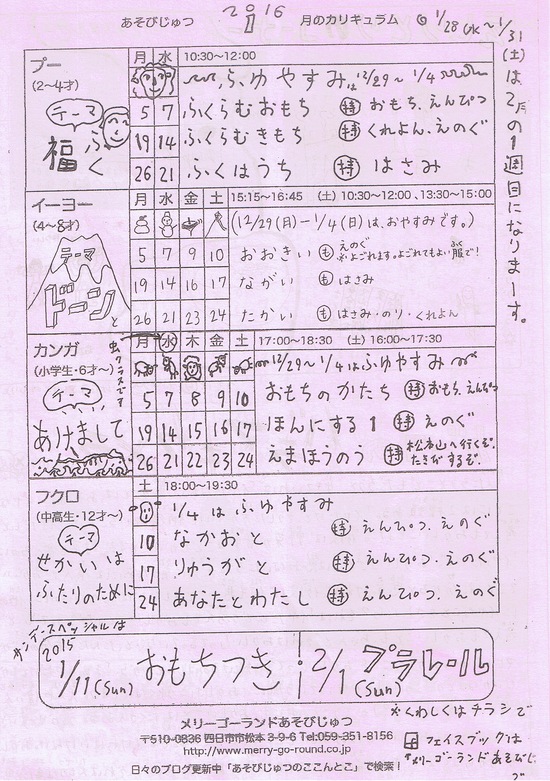 あそびじゅつ 2016 1 月のカリキュラム
◎1/28(水)～1/31(土)は2月の1週目になりまーす。
プー
(2～4才)
テーマ
福
ふく
月 水 10:30～12:00
ふゆやすみは12/29～1/4
5 7 ふくらむおもち 持 おもち、えんぴつ
19 14 ふくらむきもち 持 くれよん、えのぐ
26 21 ふくはうち 持 はさみ
イーヨー
(4～8才)
テーマ
ドーン
と
月 水 金 土 15:15～16:45 (土) 10:30～12:00 、13:30～15:00
(12/29(月)～1/4(日)は、おやすみです。)
5 7 9 10 おおきい も えのぐ
※よごれます。よごれてもよい服で!
ふく
19 14 16 17 ながい も はさみ
26 21 23 24 たかい も はさみ・のり・くれよん
カンガ
(小学生・6才～)
虫クラスです
テーマ
あけまして
月 水 木 金 土 17:00～18:30 (土) 16:00～17:30
12/29～1/4はふゆやすみ
5 7 8 9 10 おもちのかたち 持 おもち、えんぴつ
19 14 15 16 17 ほんにする1 持 えのぐ
26 21 22 23 24 えまほうのう 持 松本山へ行くぞ。
たきびするぞ。
フクロ
(中高生・12才～)
テーマ
せかいは
ふたりのために
土 18:00～19:30
1/4はふゆやすみ
10 なかおと 持 えんぴつ、えのぐ
17 りゅうがと 持 えんぴつ、えのぐ
24 あなたとわたし 持 えんぴつ、えのぐ
サンデースペッシャルは
2015
1/11(sun) おもちつき : 2/1(sun) プラレール
※くわしくはチラシで
メリーゴーランドあそびじゅつ
〒510-0836 四日市市松本 3-9-6 Tel:059-351-8156
http://www.merry-go-round.co.jp
日々のブログ更新中「あそびじゅつのここんとこ」で検索!
フェイスブックは
"メリーゴーランドあそびじゅつ"